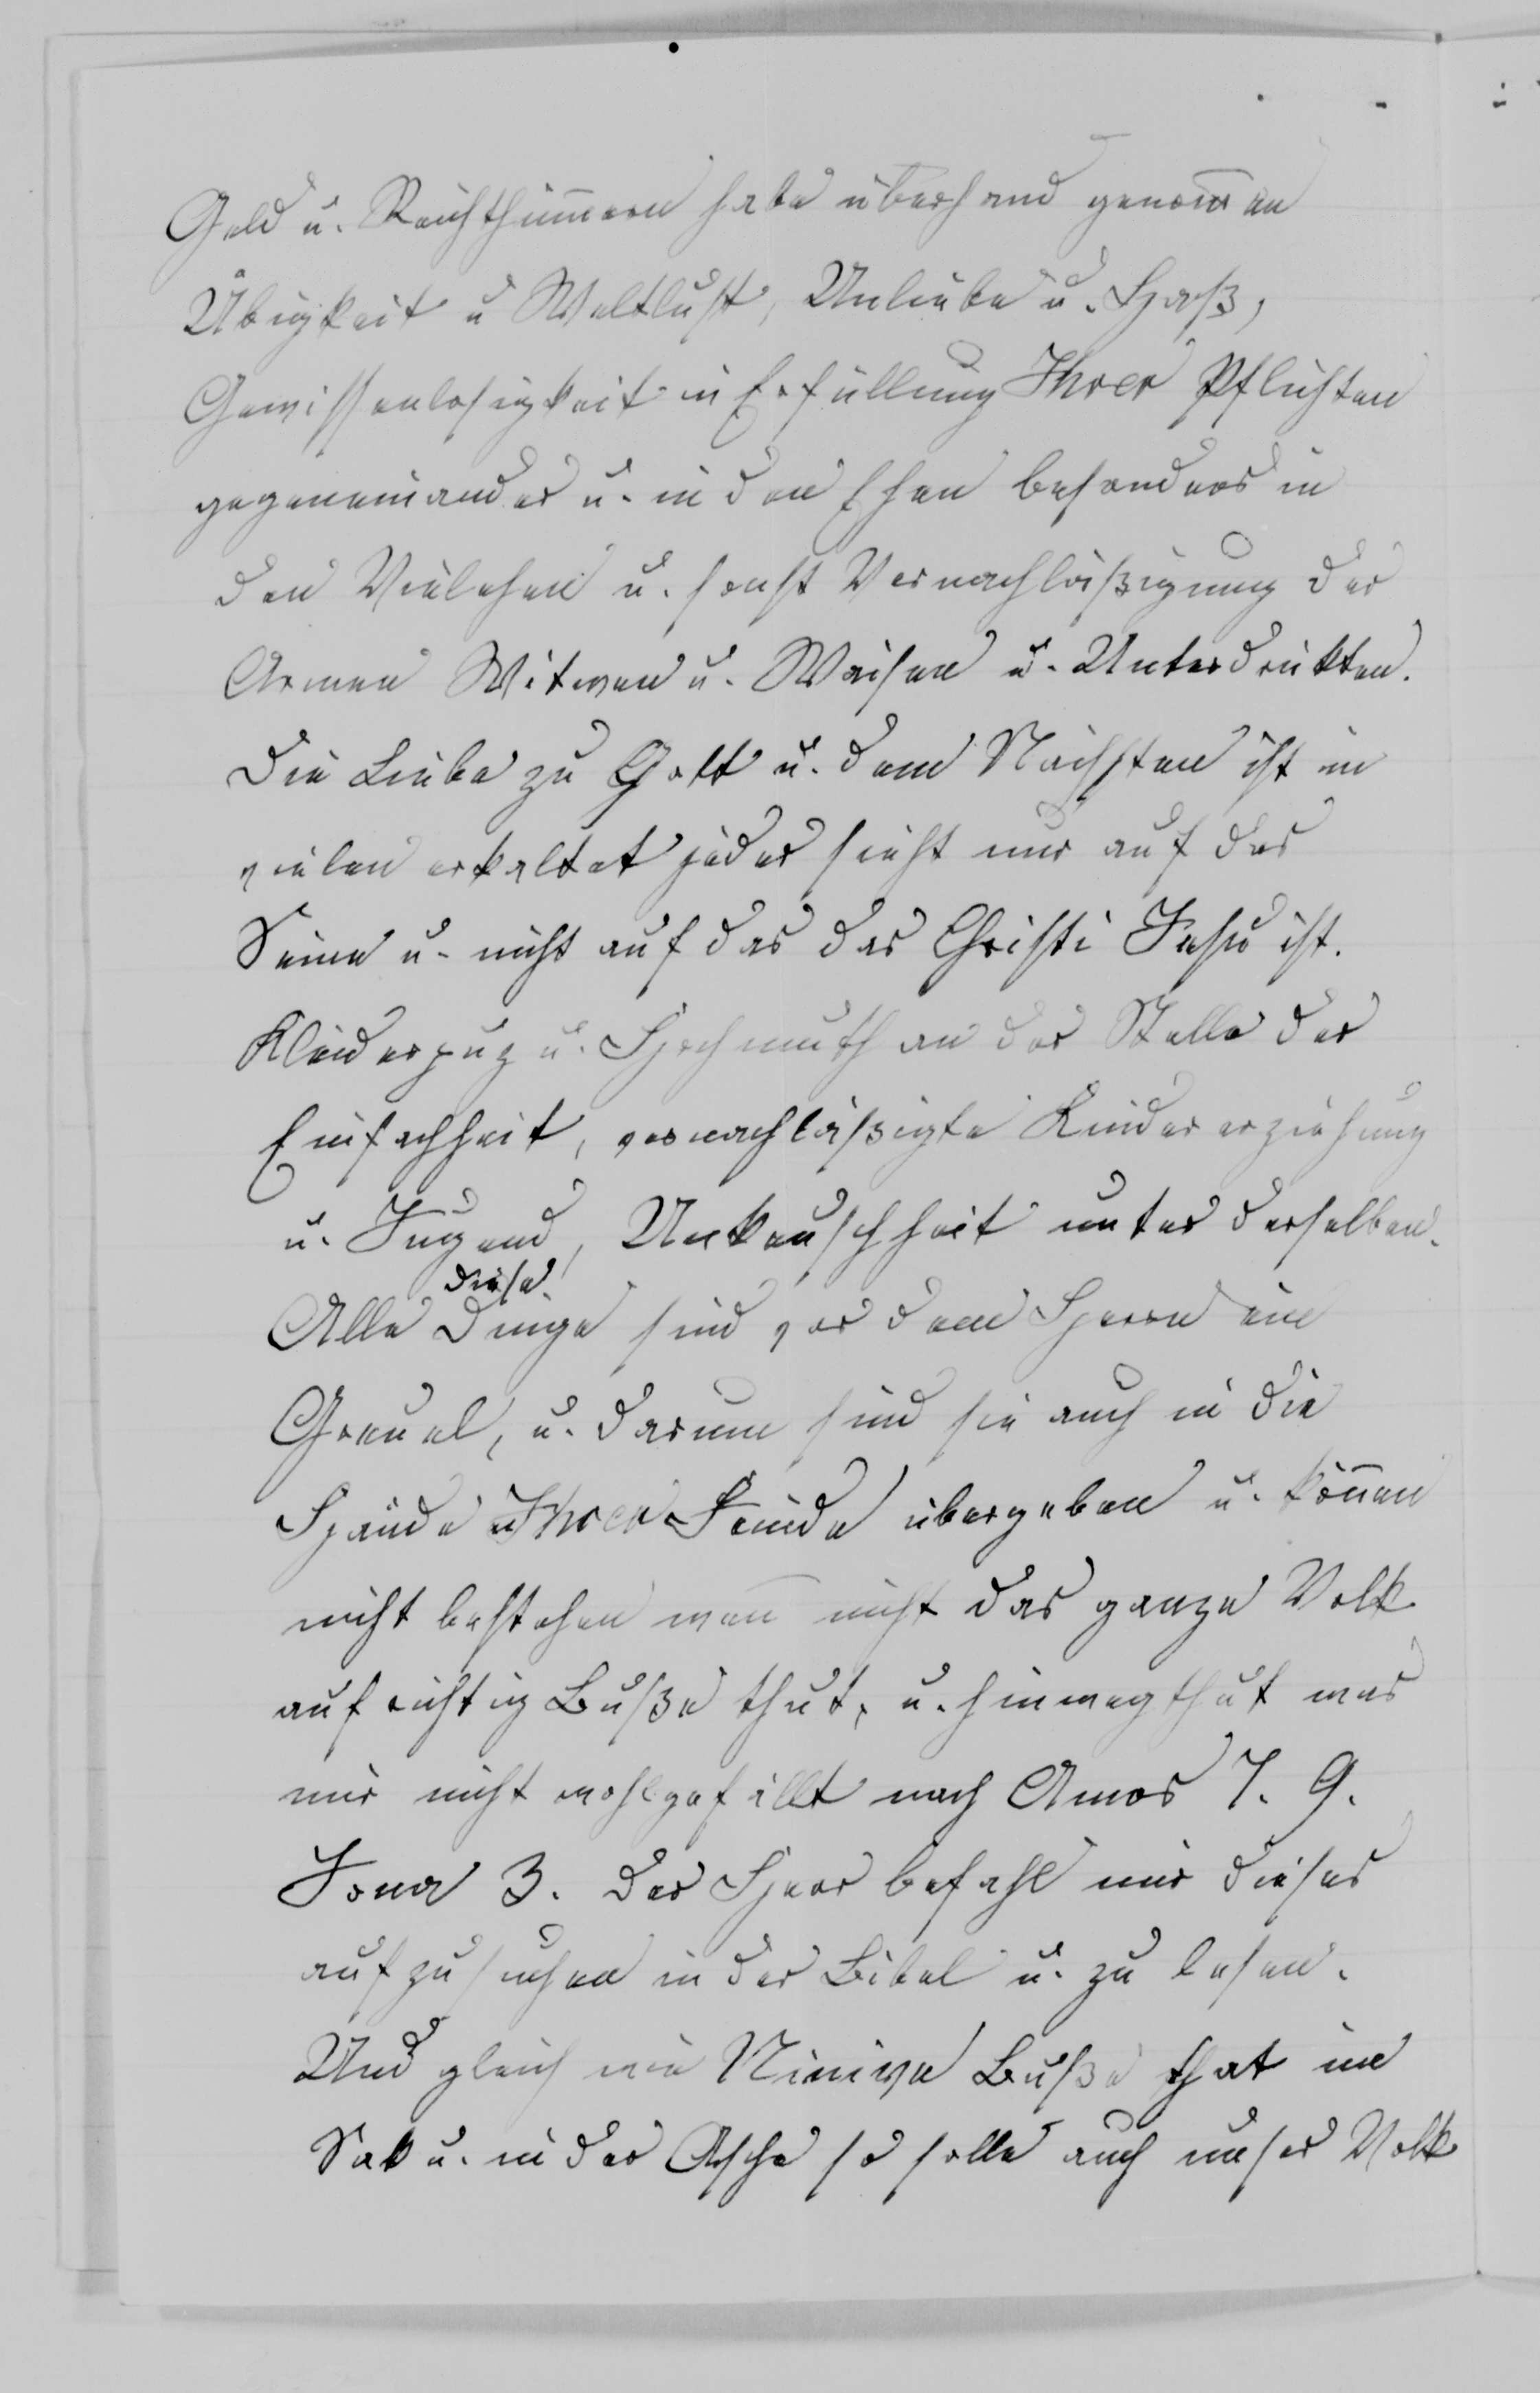 Geld u. Reichthümern habe überhand genom̅en
Übigkeit u Weltlust, Unliebe u. Haß,
Gewissenlosigkeit in Erfüllung Ihrer Pflichten
gegeneinander u. in den Ehen besonders in
den Vielehen u. sonst Vernachläßigung der
Armen Witwen u. Waisen u. Unterdrükten.
Die Liebe zu Gott u. dem Nächsten ist in
vielen erkaltet jeder sieht nur auf das
Seine u. nicht auf das das Christi Jesu ist.
Kleiderpuz u. Hochmuth an der Stelle der
Einfachheit, vernachläßigte Kindererziehung
u. Jugend, Unkeuschheit unter derselben.
diese
Alle Dinge sind vor dem Herrn ein
Greuel, u. darum sind sie auch in die
Hände Ihrer Feinde übergeben u. kön̅en
nicht bestehen wen̅ nicht das ganze Volk
aufrichtig Buße thut, u. hinwegthut was
mir nicht wohlgefällt nach Amos 7. 9.
Jona 3. Der Herr befahl mir dieses
aufzusuchen in der Bibel u. zu lesen.
Und gleich wie Ninive Buße that im
Sak u. in der Asche so solle auch unser Volk